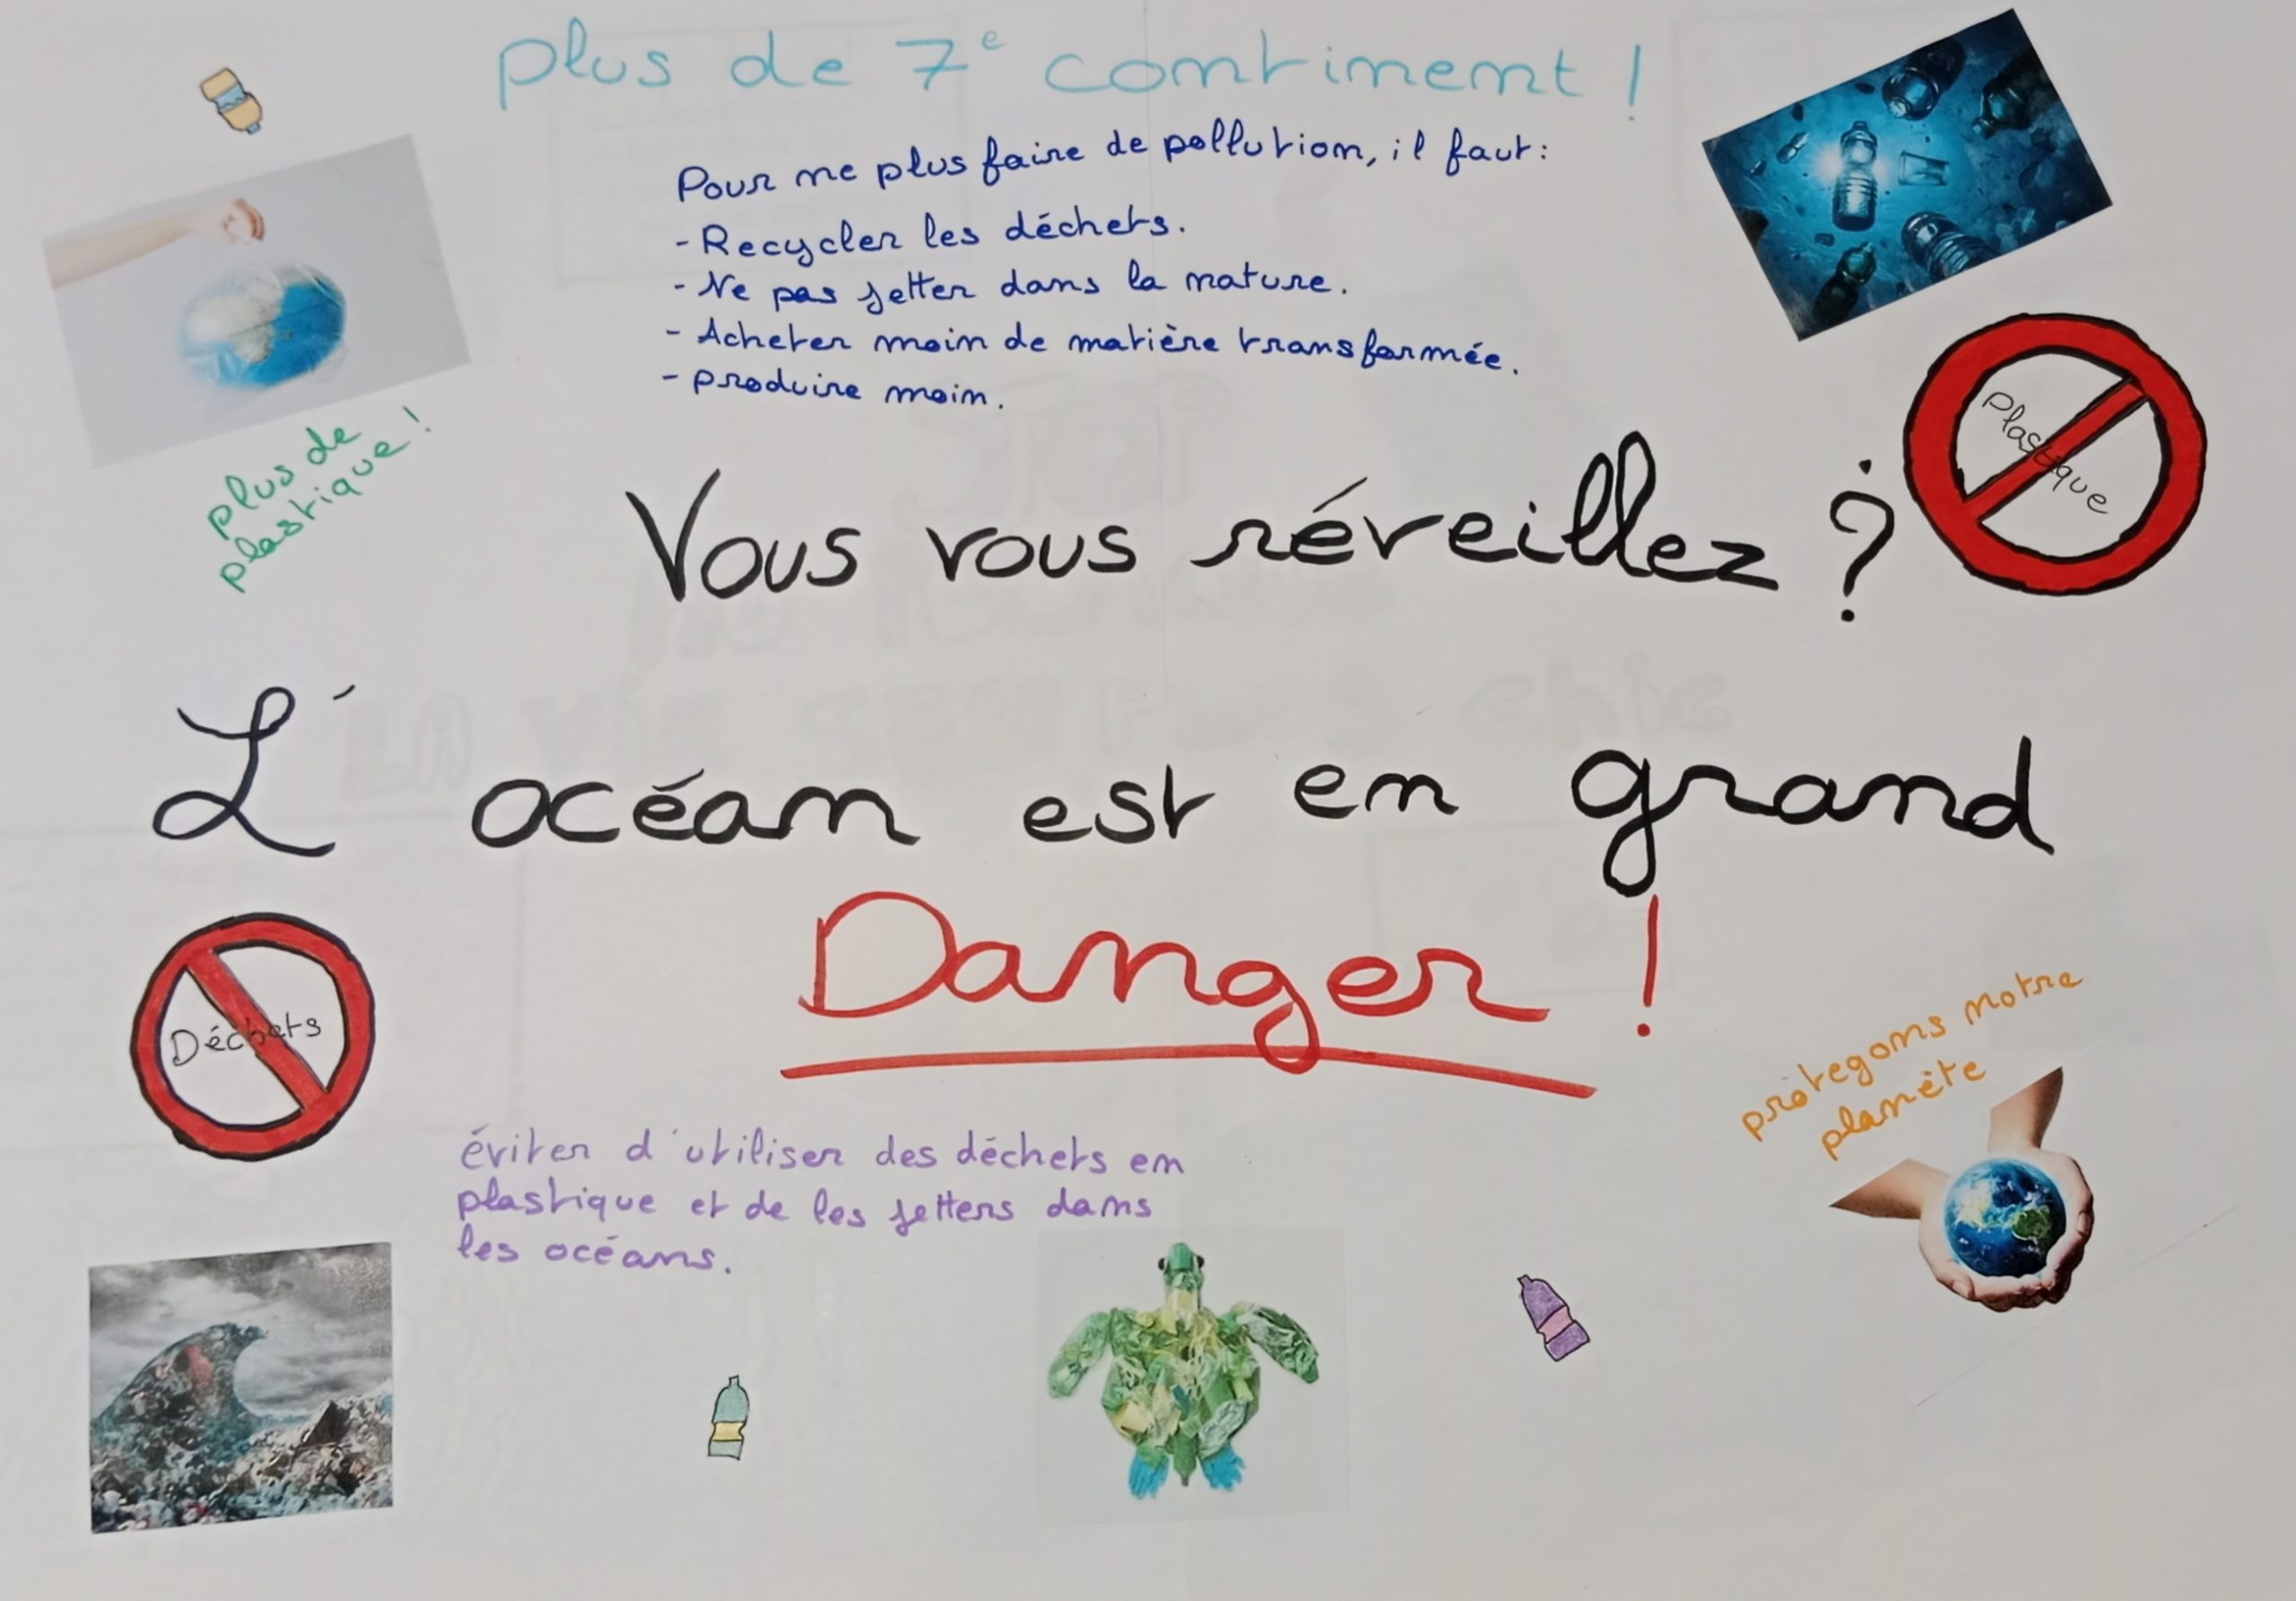 plus de 7e continent !
Pour ne plus faire de pollution, il faut :
- Recycler les déchets.
- Ne pas jetter dans la nature.
- Acheter moin de matière transformée.
- produire moin.
plus de
plastique !
Plastique
Vous vous réveillez ?
L'océan est en grand
Danger !
Déchets
protegons notre
planète
éviter d'utiliser des déchets en
plastique et de les jetters dans
les océans.